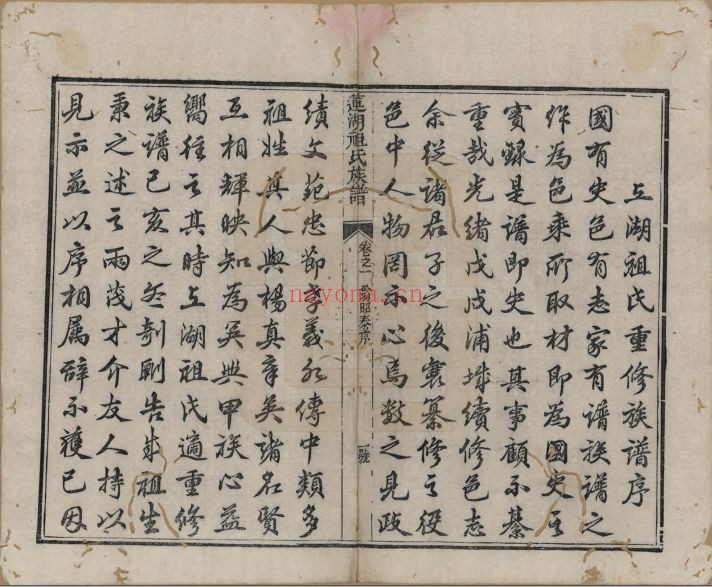 上湖祖氏重修族譜序
國有史邑有志家有譜族譜之
作為邑乘所取材即為國史之
實錄是譜即史也其事顧不綦
重哉光緒戊戌浦城續修邑志
余從諸君子之後襄纂修之役
邑中人物罔不心焉數之見政
蓮湖祖氏族譜
卷之一
昭奏序
一號
績文苑忠節孝義列傳中類多
祖姓其人與楊真章吳諸名賢
互相輝映知為吳興甲族心益
嚮往之其時上湖祖氏適重修
族譜已亥之冬剞劂告成祖生
秉之述之兩茂才介友人持以
見示並以序相屬辭不獲已因
nayona.cn